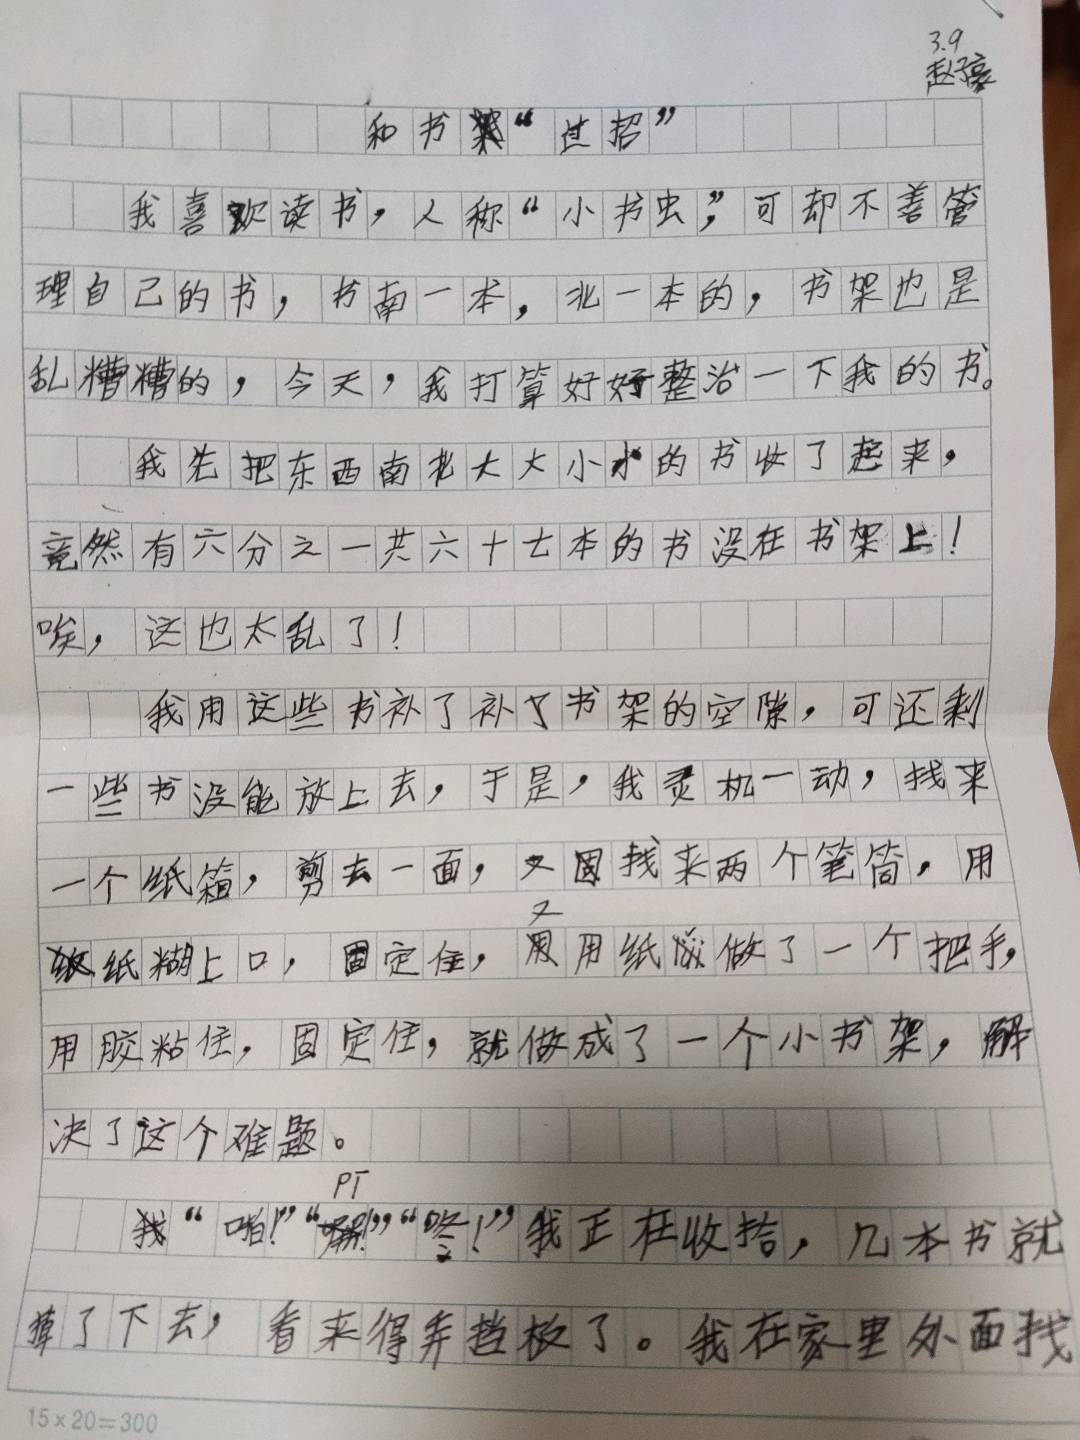 3.9
赵子豪
和书架“过招”
我喜欢读书，人称“小书虫”，可却不善管
理自己的书，书南一本，北一本的，书架也是
乱糟糟的，今天，我打算好好整治一下我的书。
我先把东西南北大大小小的书收了起来，
竟然有六分之一共六十七本的书没在书架上！
唉，这也太乱了！
我用这些书补了补了书架的空隙，可还剩
一些书没能放上去，于是，我灵机一动，找来
一个纸箱，剪去一面，又固找来两个笔筒，用
纸糊上口，固定住，又用纸做了一个把手，
用胶粘住，固定住，就做成了一个小书架，解
决了这个难题。
“啪！”“啊！”“咚！”我正在收拾，几本书就
掉了下去，看来得弄挡板了。我在家里外面找
15×20=300